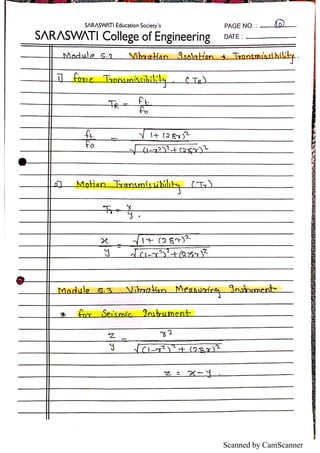 SARASWATI Education Society's
SARASWATI College of Engineering
PAGE NO. : 10
DATE :
Module 5.2 Vibration Isolation & Transmissibility.
1] force Transmissibility (TR)
TR = Ft / Fo
Ft / Fo = √1+(2ξr)² / √(1-r²)²+(2ξr)²
2] Motion Transmissibility (Tr)
Tr = x / y.
x / y = √1+(2ξr)² / √(1-r²)²+(2ξr)²
Module 5.3 Vibration Measuring Instrument
* for Seismic Instrument
z / y = r² / √(1-r²)²+(2ξr)²
z = x-y.
Scanned by CamScanner